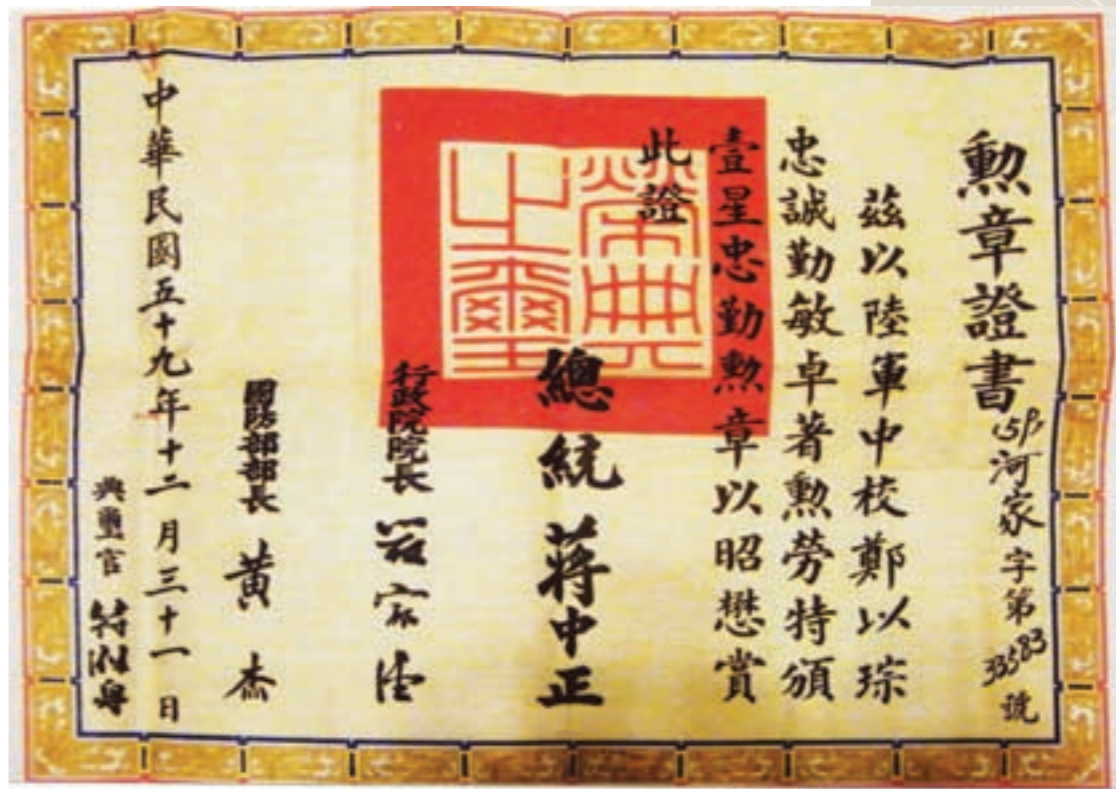 勲章證書
河家字第33583號
茲以陸軍中校鄭以琮
忠誠勤敏卓著勲勞特頒
壹星忠勤勲章以昭懋賞
此證
榮典之璽
總統 蔣中正
行政院院長
國防部部長 黃杰
中華民國五十九年十二月三十一日
典璽官